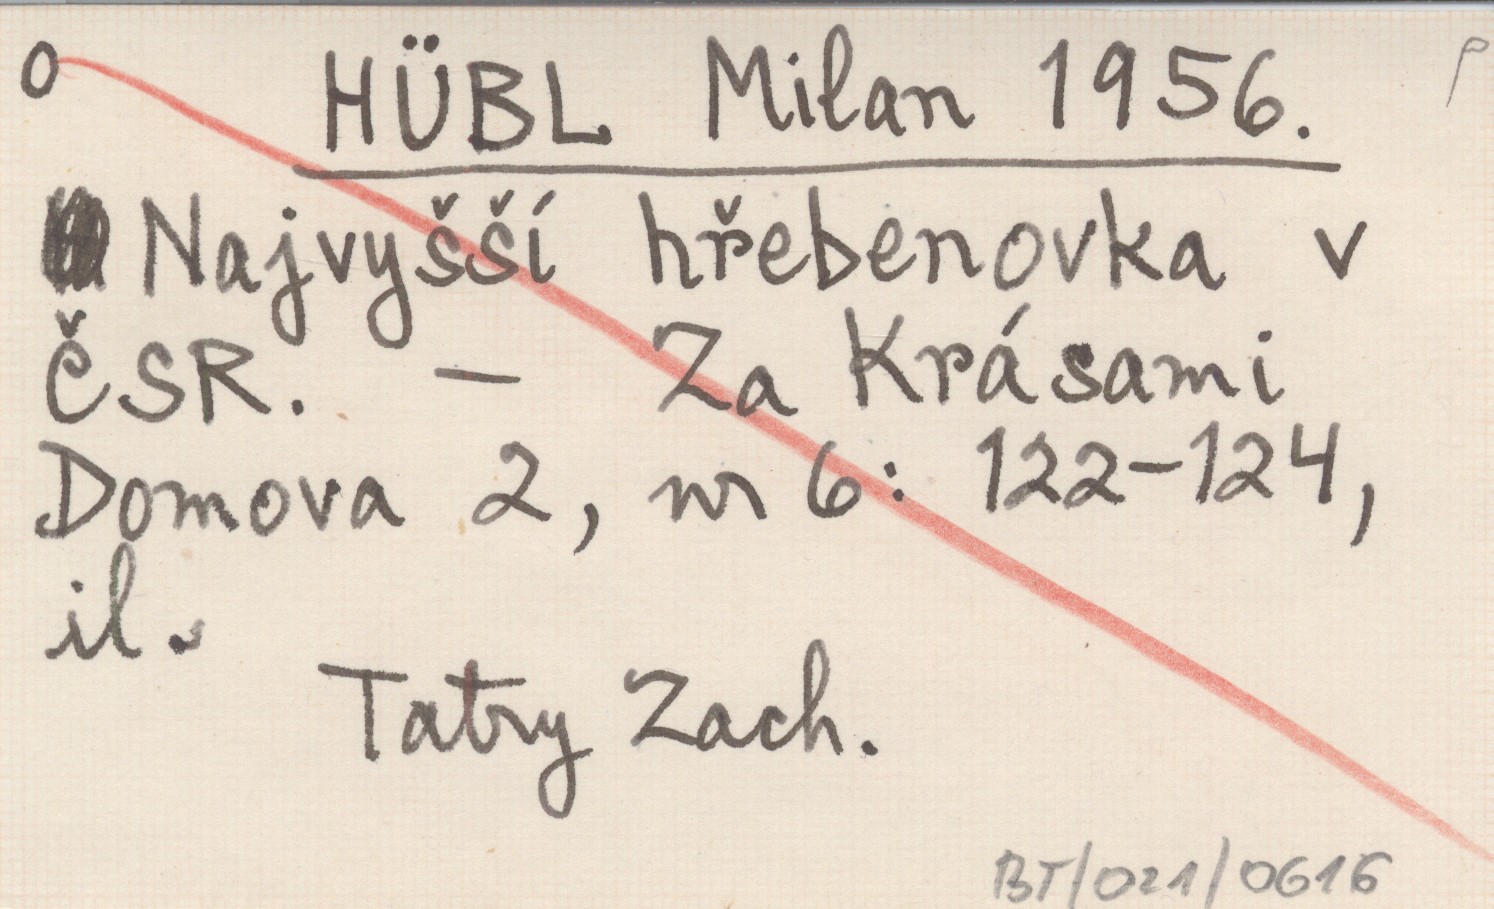 O HÜBL Milan 1956. P
Najvyšší hřebenovka v
ČSR. — Za Krásami
Domova 2, nr 6: 122-124,
il.
Tatry Zach.
BT/021/0616